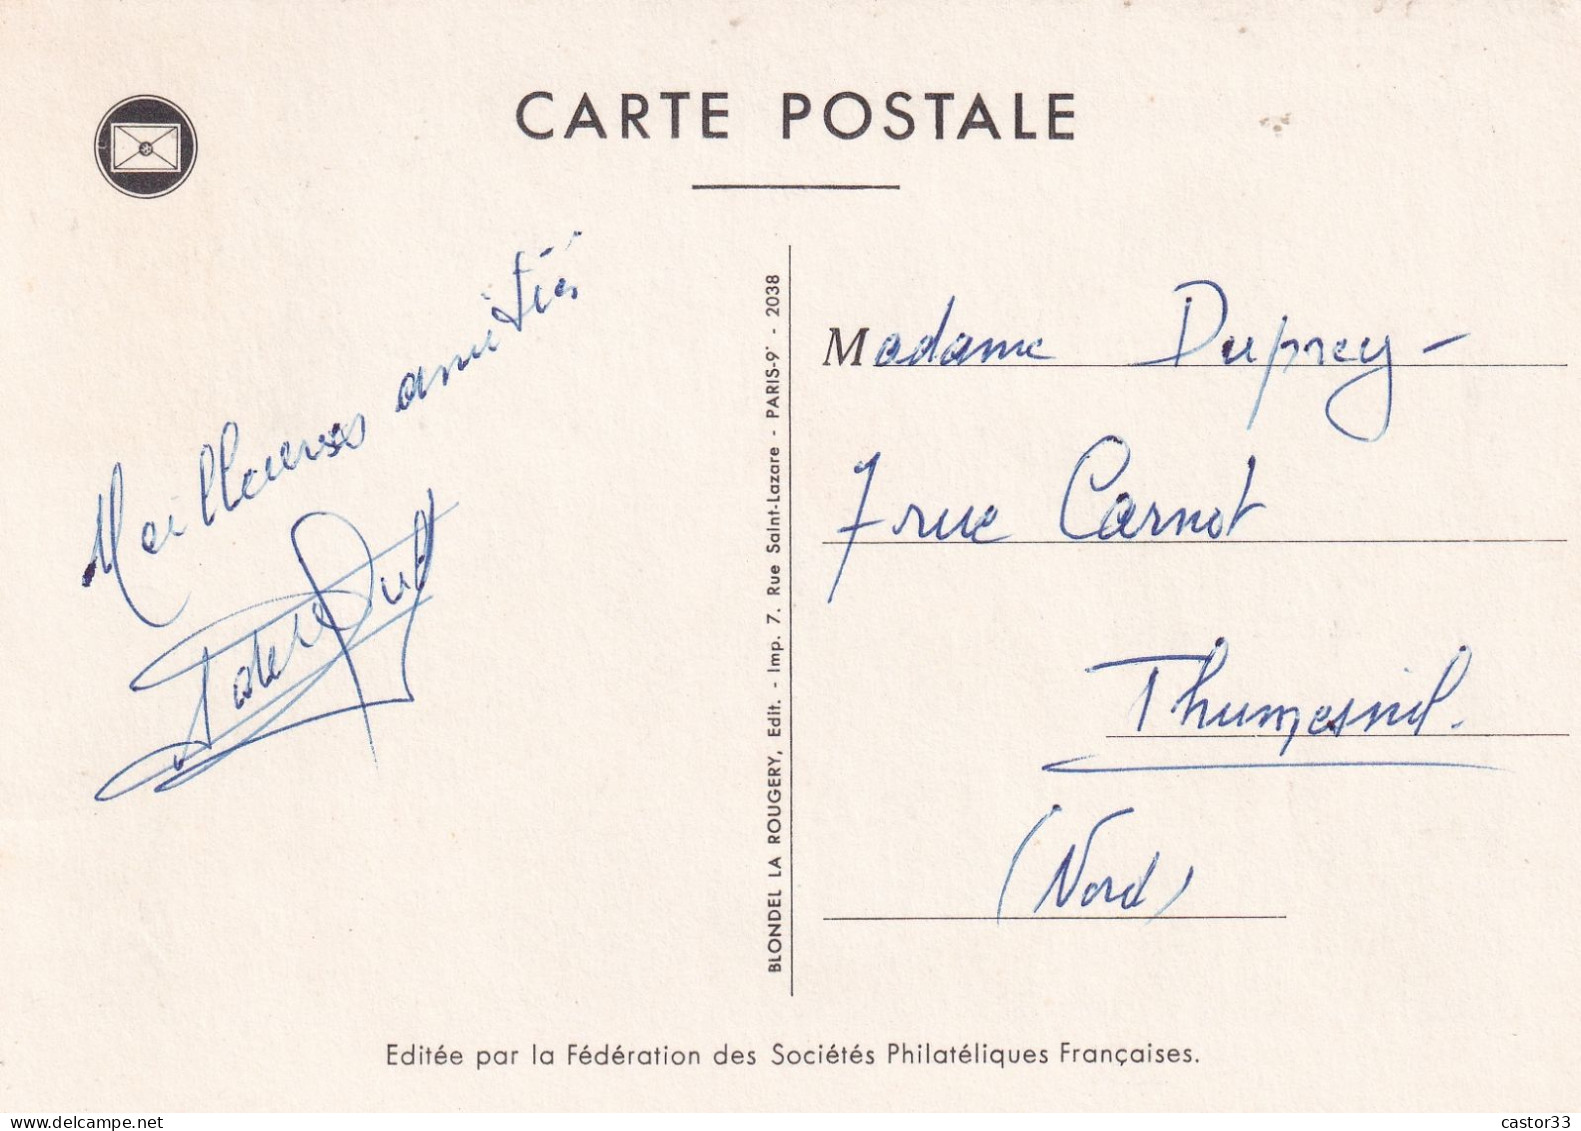 CARTE POSTALE
Meilleures amitiés
BLONDEL LA ROUGERY, Edit. - Imp. 7. Rue Saint-Lazare - PARIS-9° - 2038
Madame Duprey -
7 rue Carnot
Thumesnil.
(Nord)
Editée par la Fédération des Sociétés Philatéliques Françaises.
castor33